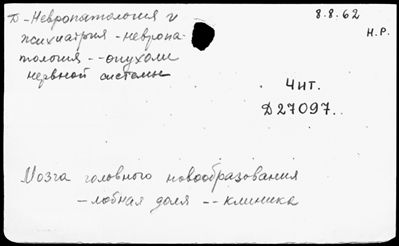 Д - Невропатология и
8.8.62
психиатрия - невропа-
Н.Р.
тология -- опухоли
нервной системы
Чит.
Д 27097.
Мозга головного новообразования
- лобная доля -- клиника